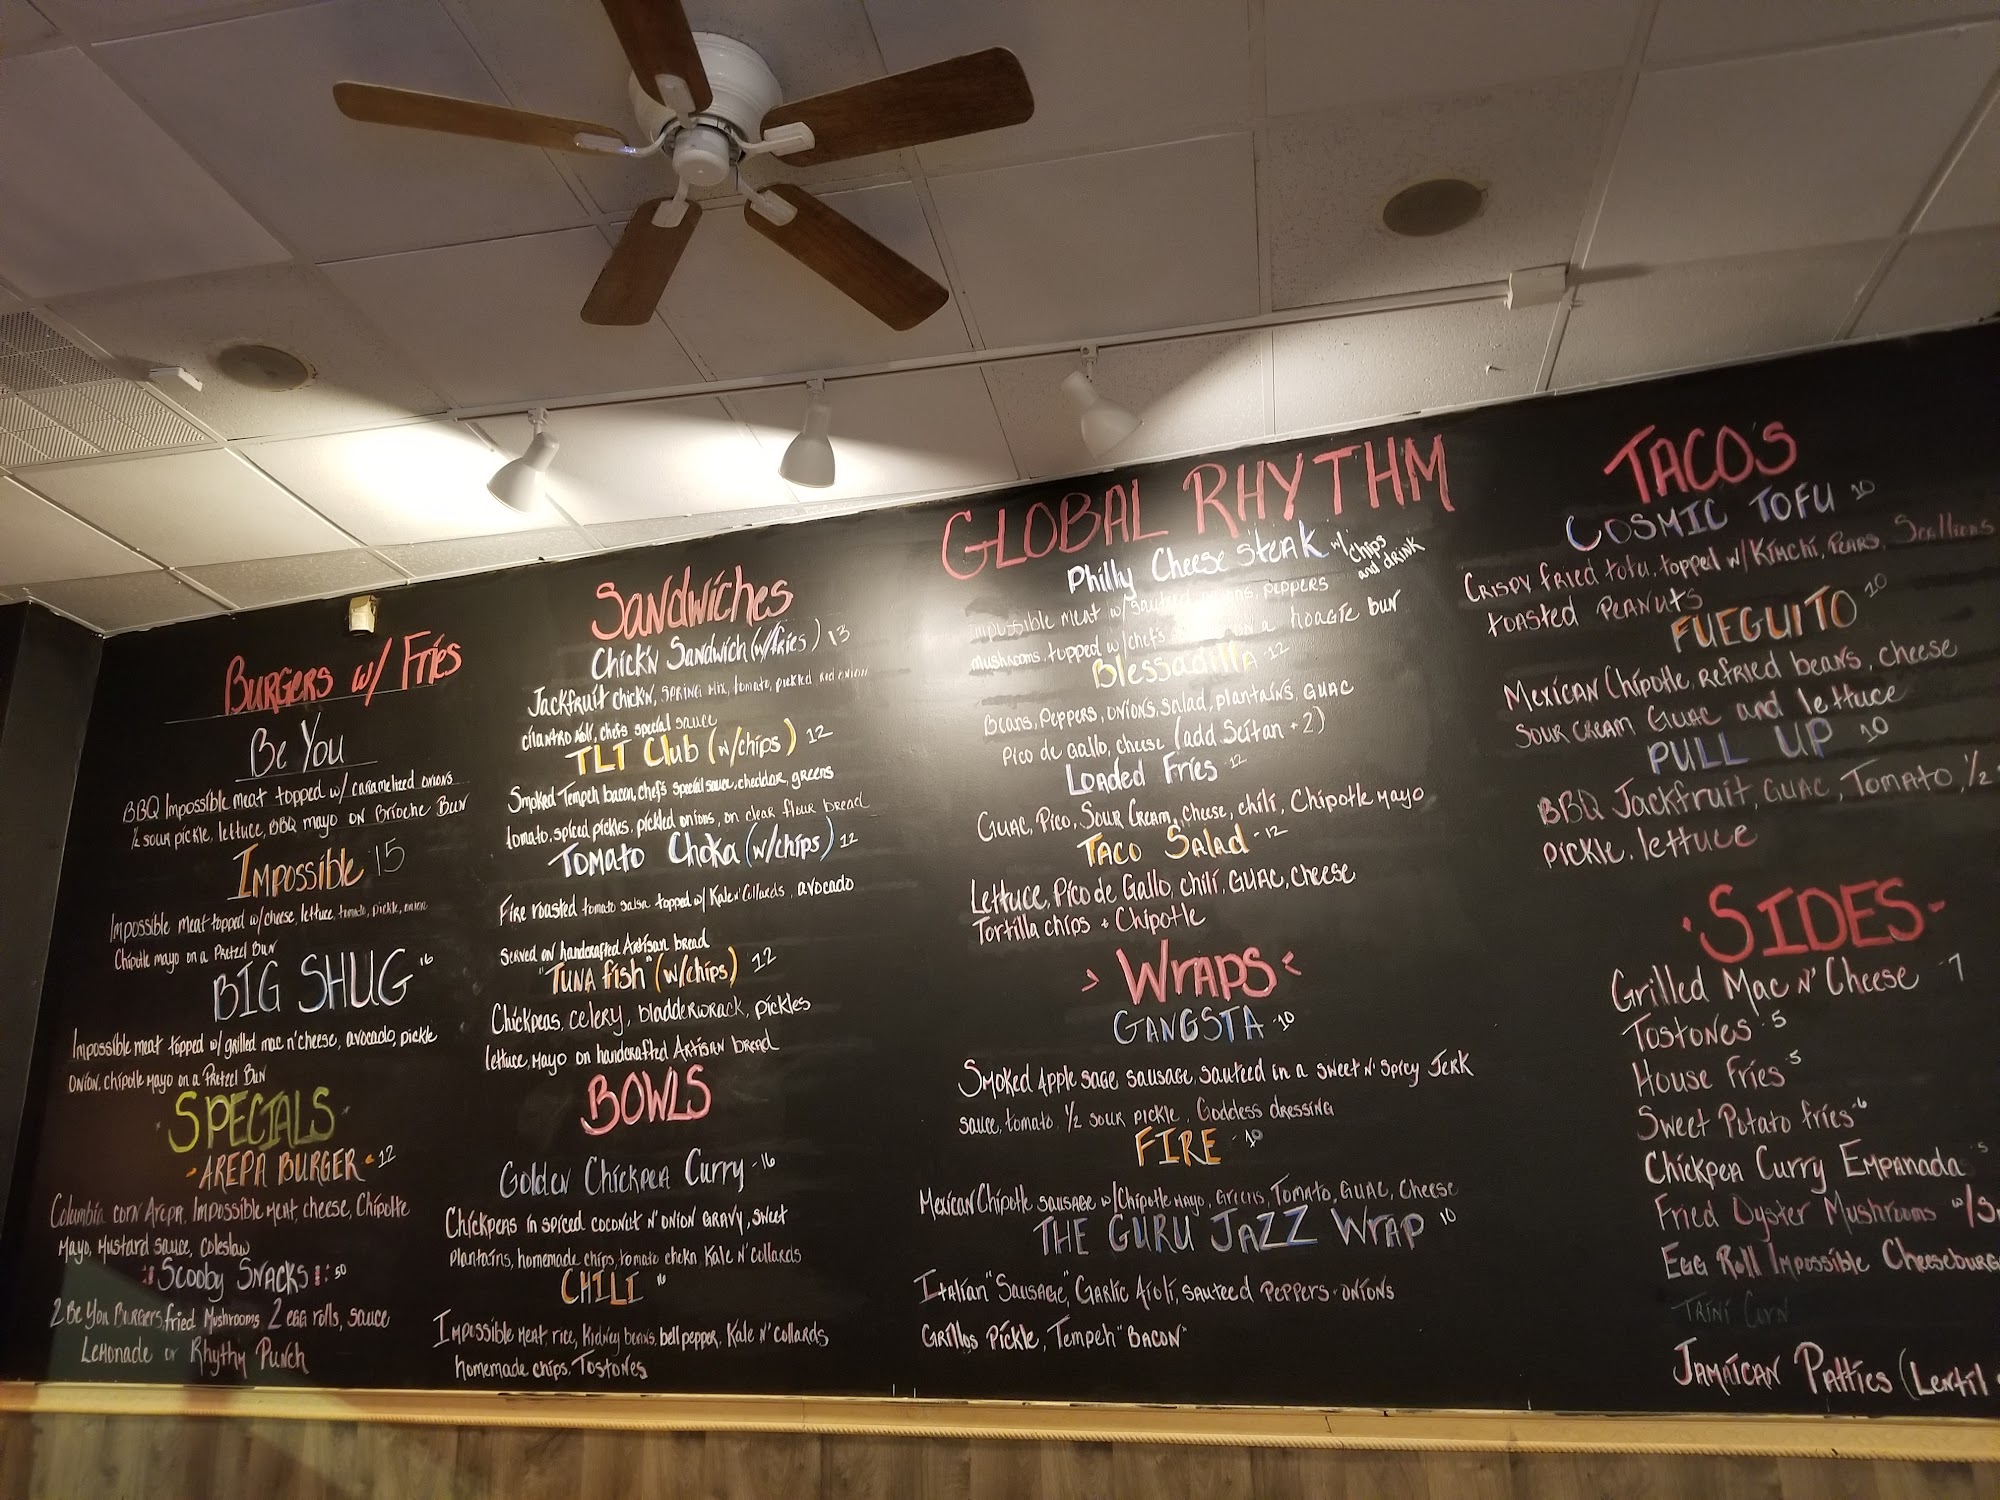 BURGERS w/ FRIES
Be You
BBQ Impossible meat topped w/ caramelized onions
½ sour pickle, lettuce, BBQ mayo on Brioche Bun
Impossible 15
Impossible meat topped w/ cheese, lettuce, tomato, pickle, onion
Chipotle mayo on a Pretzel Bun
BIG SHUG 16
Impossible meat topped w/ grilled mac n' cheese, avocado, pickle
onion, chipotle mayo on a Pretzel Bun
SPECIALS
AREPA BURGER 12
Columbia corn Arepa, Impossible meat, cheese, Chipotle
Mayo, Mustard sauce, coleslaw
Scooby SNACKS 50
2 Be You Burgers, fried Mushrooms, 2 egg rolls, sauce
Lemonade or Rhythy Punch
Sandwiches
Chick'n Sandwich (w/fries) 13
Jackfruit chick'n, spring mix, tomato, pickled red onion
cilantro aioli, chefs special sauce
TLT Club (w/chips) 12
Smoked Tempeh bacon, chefs special sauce, cheddar, greens
tomato, spiced pickles, pickled onions, on clear flour bread
Tomato Choka (w/chips) 12
Fire roasted tomato salsa topped w/ Kale n' Collards, avocado
Served on handcrafted Artisan bread
"Tuna fish" (w/chips) 12
Chickpeas, celery, bladderwrack, pickles
lettuce, mayo on handcrafted Artisan bread
BOWLS
Golden Chickpea Curry - 16
Chickpeas in spiced coconut n' onion gravy, sweet
plantains, homemade chips, tomato chokn Kale n' Collards
CHILI 16
Impossible meat rice, kidney beans, bell pepper, Kale n' Collards
homemade chips, Tostones
GLOBAL RHYTHM
Philly Cheese Steak w/ chips and drink
Impossible meat w/ sauteed onions, peppers
mushrooms, topped w/ chef's on a hoagie bun
Blessadilla - 12
Beans, peppers, onions, salad, plantains, guac
Pico de gallo, cheese (add Seitan +2)
Loaded Fries - 12
Guac, Pico, Sour Cream, cheese, chili, Chipotle mayo
Taco Salad - 12
Lettuce, Pico de Gallo, chili, guac, cheese
Tortilla chips + Chipotle
> Wraps <
GANGSTA - 10
Smoked Apple sage sausage, sauteed in a sweet n' spicy Jerk
sauce, tomato, ½ sour pickle, Goddess dressing
FIRE - 10
Mexican Chipotle sausage w/ Chipotle mayo, Greens, Tomato, Guac, Cheese
THE GURU JAZZ WRAP 10
Italian "Sausage", Garlic Aioli, sauteed peppers + onions
Grillos Pickle, Tempeh "Bacon"
TACO'S
COSMIC TOFU 10
Crispy fried tofu, topped w/ Kimchi, Pears, Scallions
toasted peanuts
FUEGUITO 10
Mexican Chipotle, refried beans, cheese
sour cream guac and lettuce
PULL UP 10
BBQ Jackfruit, guac, Tomato, ½
pickle, lettuce
- SIDES -
Grilled Mac n' Cheese - 7
Tostones - 5
House Fries - 5
Sweet Potato fries - 6
Chickpea Curry Empanada - 5
Fried Oyster Mushrooms w/
Egg Roll Impossible
Trini Corn
Jamaican Patties (Lentil